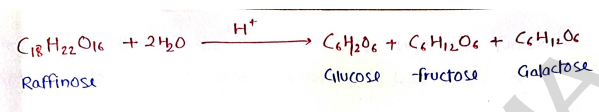 H⁺
C₁₈H₂₂O₁₆ + 2H₂O ⟶ C₆H₂O₆ + C₆H₁₂O₆ + C₆H₁₂O₆
Raffinose Glucose fructose Galactose